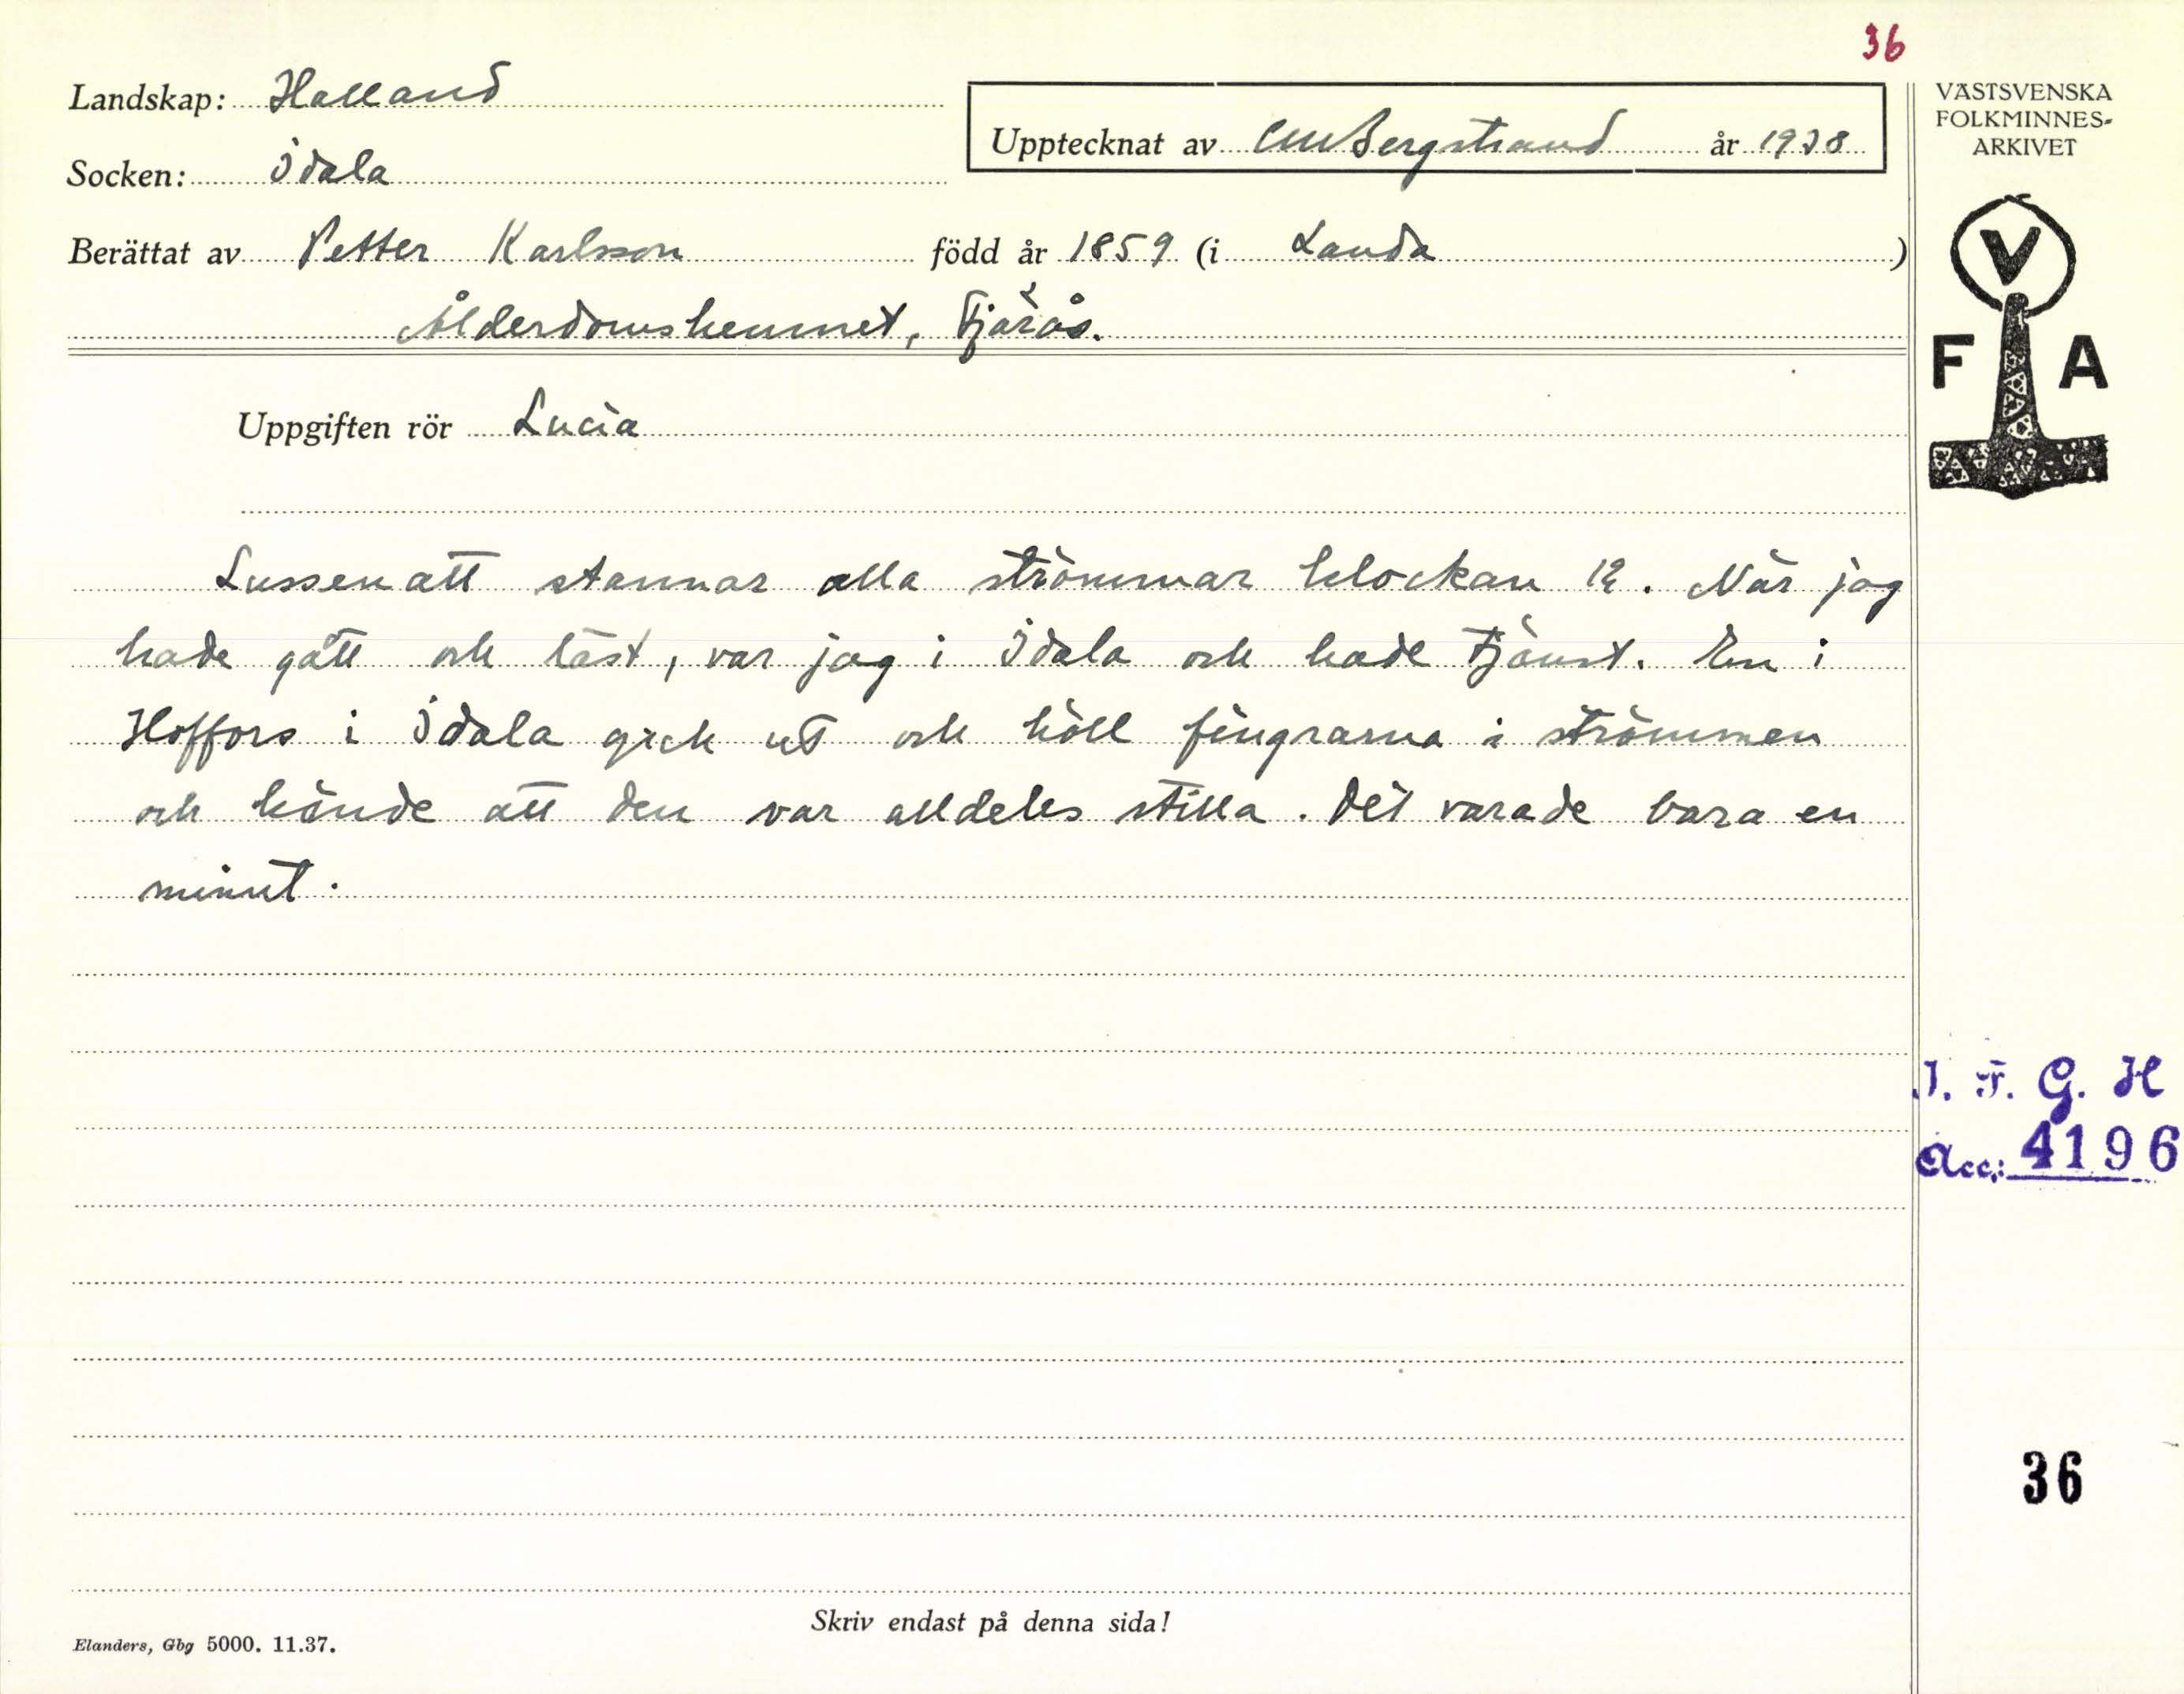 36
Landskap: Halland
Upptecknat av CMBergstrand år 1938
Socken: Idala
Berättat av Petter Karlsson född år 1859 (i Landa )
Ålderdomshemmet, Fjärås.
Uppgiften rör Lucia
Lussenatt stannar alla strömmar klockan 12. När jag
hade gått och läst, var jag i Idala och hade tjänst. En i
Hoffors i Idala gick ut och höll fingrarna i strömmen
och kände att den var alldeles stilla. Det varade bara en
minut.
Skriv endast på denna sida!
Elanders, Gbg 5000. 11.37.
VÄSTSVENSKA
FOLKMINNES-
ARKIVET
V
F A
I. F. G. H
Acc: 4196
36